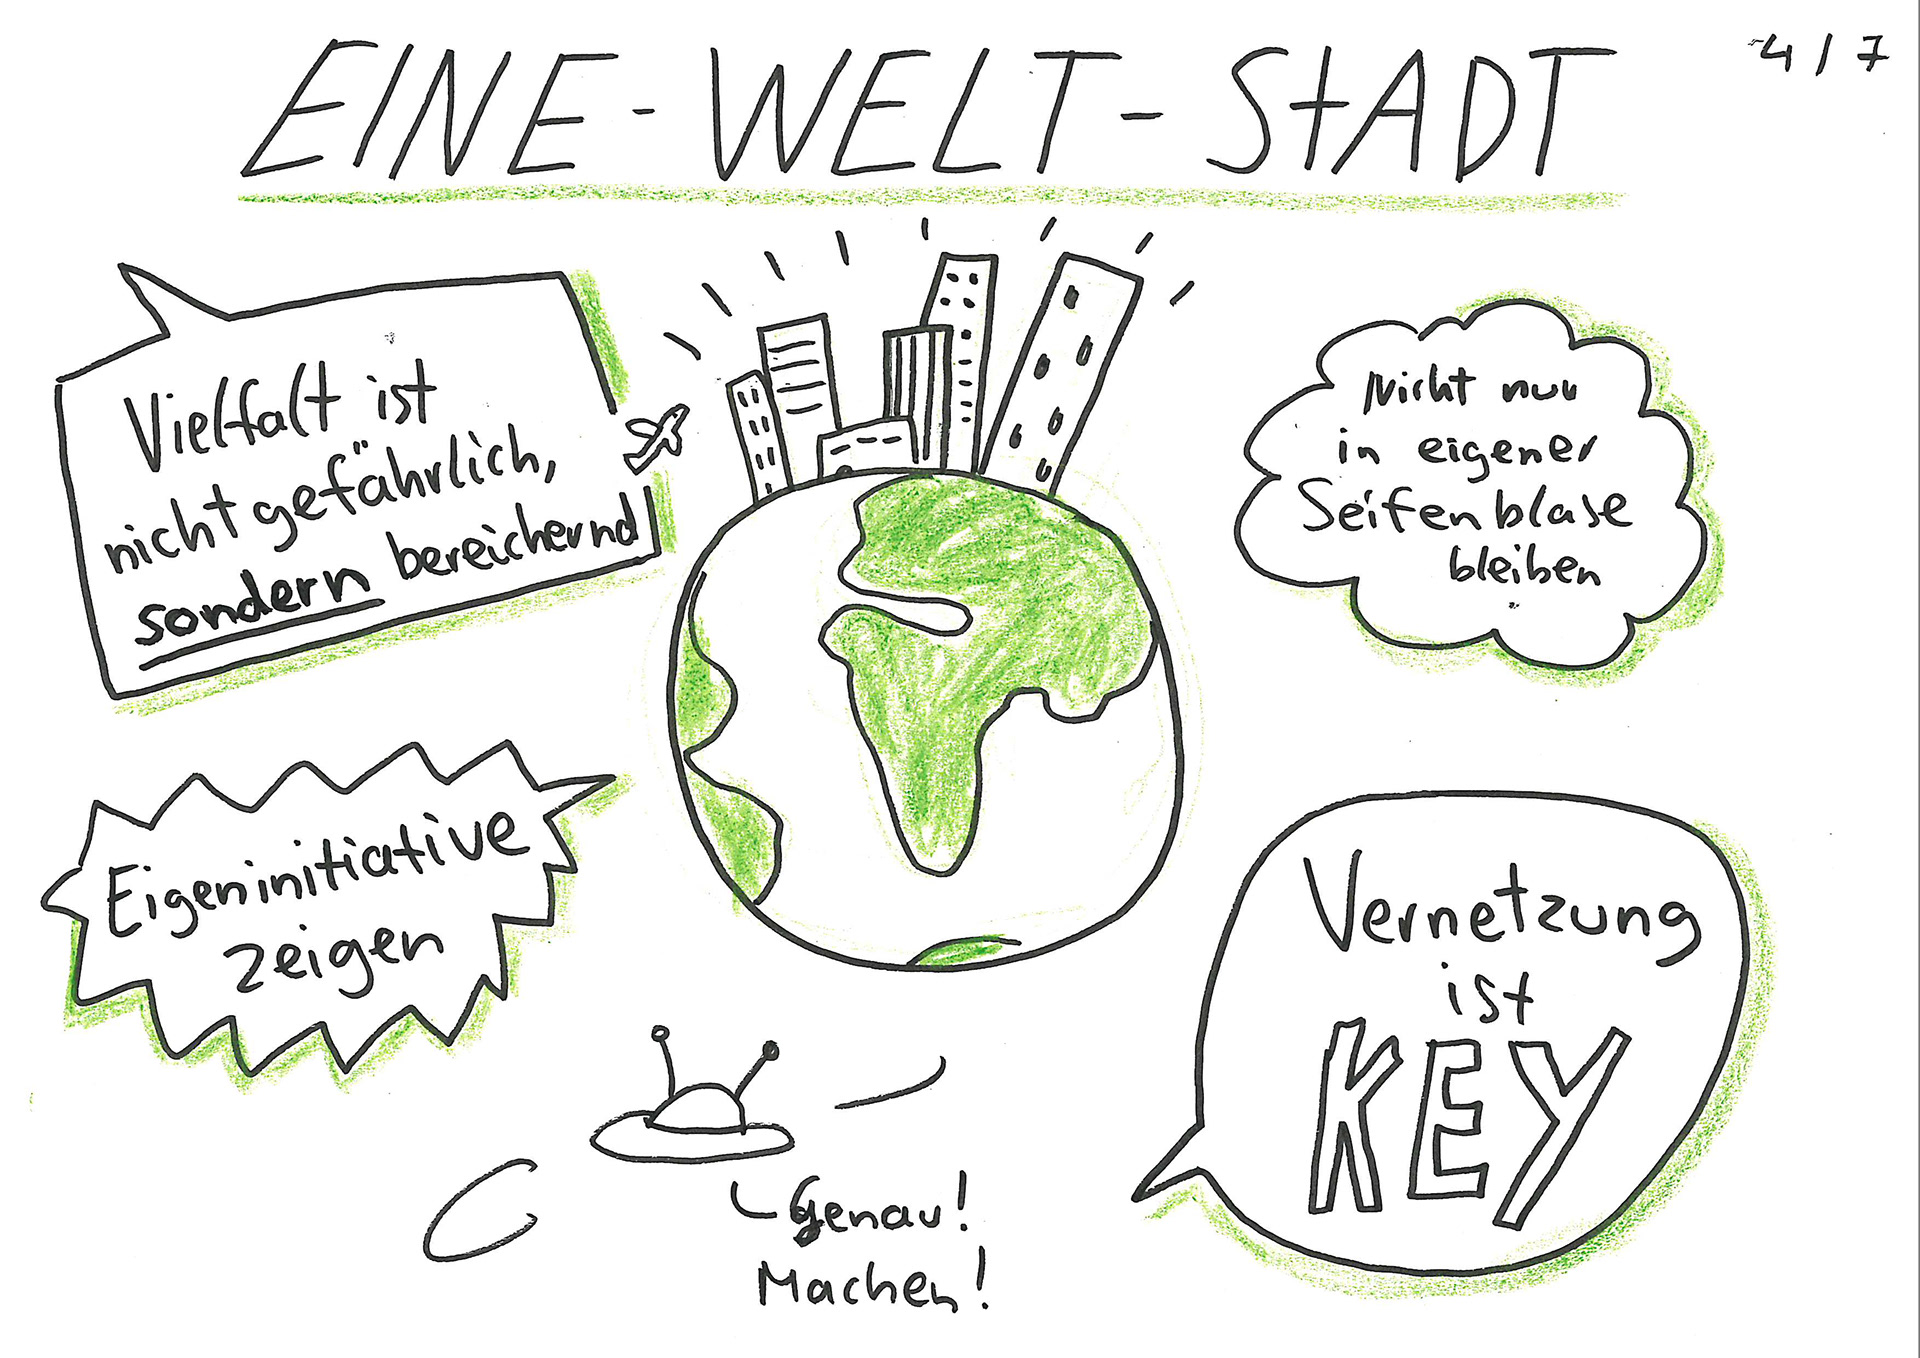 EINE-WELT-STADT
4/7
Vielfalt ist
nicht gefährlich,
sondern bereichernd
Nicht nur
in eigener
Seifenblase
bleiben
Eigeninitiative
zeigen
Vernetzung
ist
KEY
Genau!
Machen!